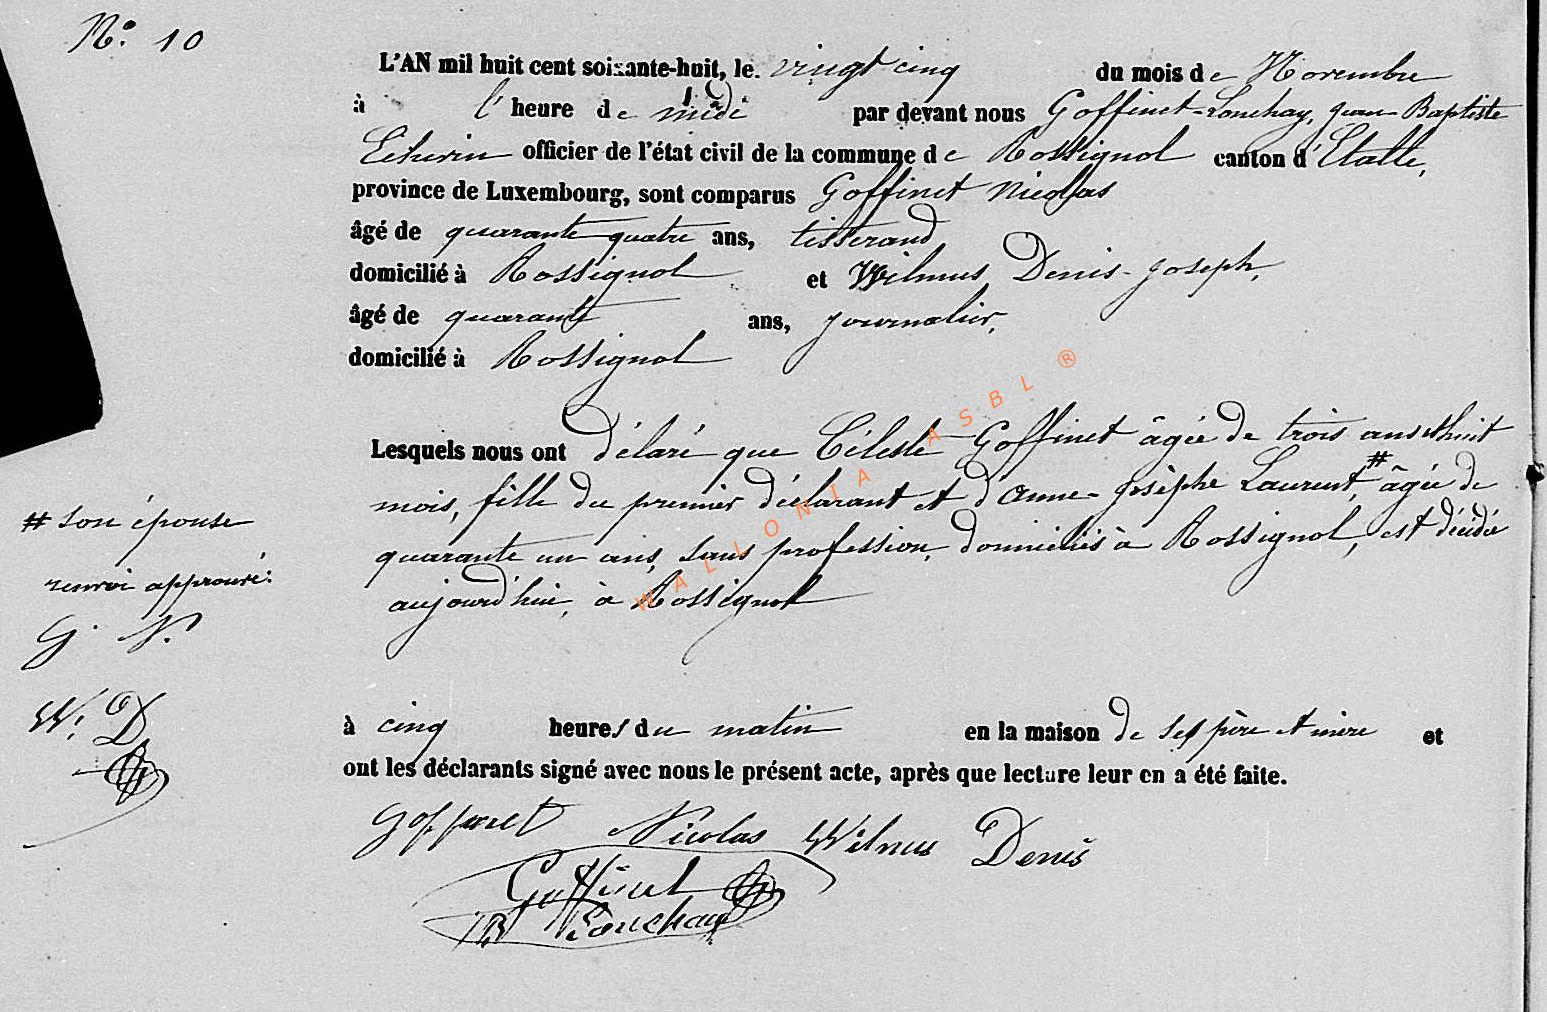 N.° 10
L'AN mil huit cent soixante-huit, le vingt cinq du mois de Novembre
à l'heure de midi par devant nous Goffinet-Louchay, Jean Baptiste
Echevin officier de l'état civil de la commune de Rossignol canton d'Etalle,
province de Luxembourg, sont comparus Goffinet Nicolas
âgé de quarante quatre ans, tisserand
domicilié à Rossignol et Wilmus, Denis-Joseph,
âgé de quarante ans, journalier,
domicilié à Rossignol
Lesquels nous ont délaré que Céleste Goffinet âgée de trois ans et huit
mois, fille du premier déclarant et d'Anne-Josèphe Laurent, # âgée de
quarante un ans, sans profession, domiciliés à Rossignol, est décédée
aujourd'hui, à Rossignol
# son épouse
renvoi approuvé:
G. N.
W. D
à cinq heures du matin en la maison de ses père et mère et
ont les déclarants signé avec nous le présent acte, après que lecture leur en a été faite.
Goffinet Nicolas Wilmus Denis
Goffinet
JB Louchay
WALLONIA ASBL ®